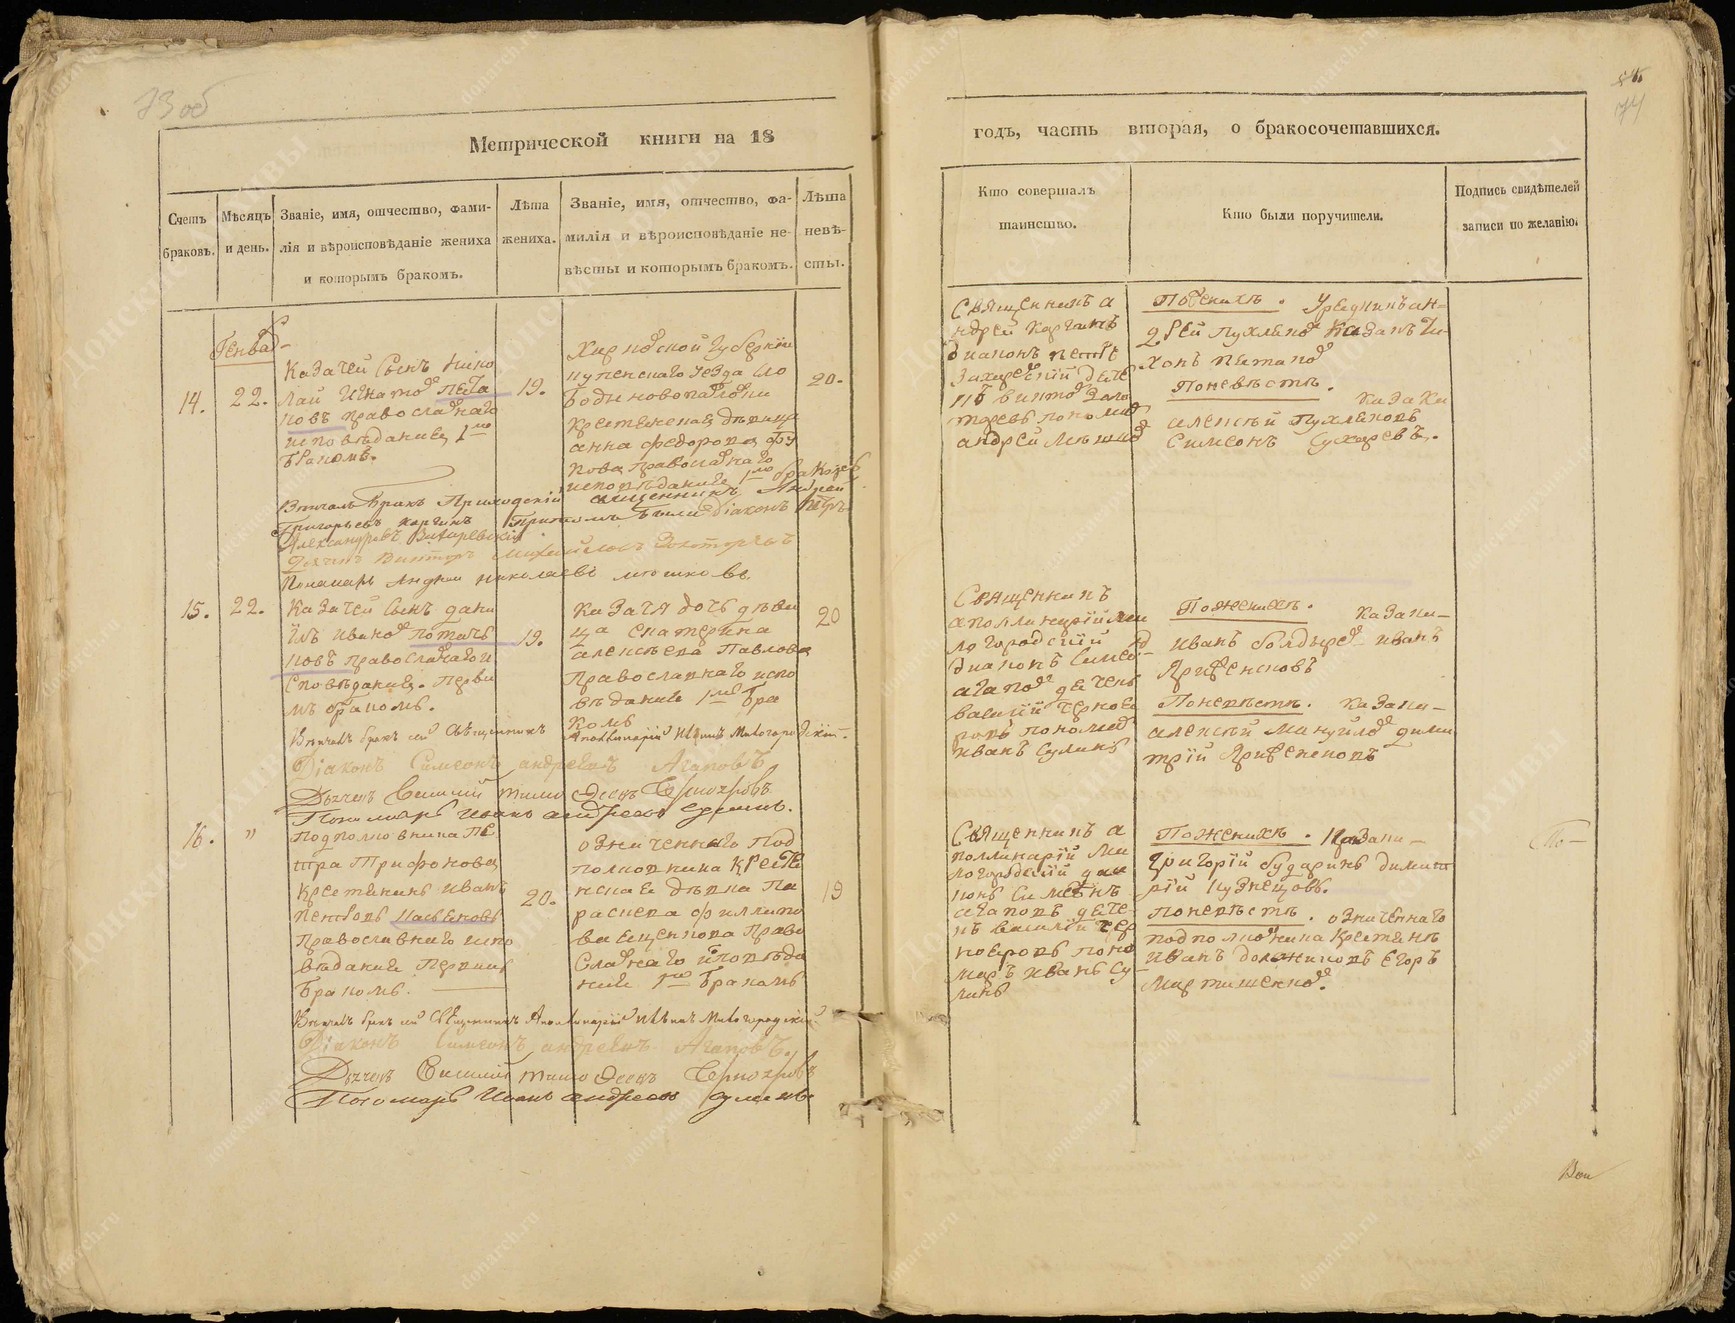 73 об
74
Метрической книги на 18
годъ, часть вторая, о бракосочетавшихся.
Счетъ браковъ.
Мѣсяцъ и день.
Званіе, имя, отчество, фами-
лія и вѣроисповѣданіе жениха
и которымъ бракомъ.
Лѣта
жениха.
Званіе, имя, отчество, фа-
милія и вѣроисповѣданіе не-
вѣсты и которымъ бракомъ.
Лѣта
невѣ-
сты.
Кто совершалъ
таинство.
Кто были поручители.
Подпись свидѣтелей
записи по желанію.
Генвар
14.
22.
Казачей сынъ Нико
лай Игнатов
новъ православнаго
исповѣдания 1мъ
бракомъ.
19.
Харковской губернїи
купенскаго уезда сло
боды
крестьянская дѣвица
анна федорова
православнаго
исповѣдание 1мъ
20.
Священникъ а
ндрей Каргинъ
диаконъ
андрей
По женихѣ. Урядникъ ан-
дрей Пухляков казакъ Ти-
хонъ
По невѣстѣ.
казаки
алексѣй Пухляковъ
Симеонъ Сухаревъ.
Вѣнчалъ бракъ Приходский священникъ Андрей
Григорьевъ Каргинъ При томъ были Діаконъ
Александровъ
Викторъ Михайловъ Золотаревъ
Пономарь Андрей Николаевъ
15.
22.
Казачей сынъ дани
илъ иванов потачь
новъ православнаго и
сповѣдания. Первы
мъ бракомъ.
19.
Казачя дочь дѣви
ца екатерина
алексѣева Павлова
Православнаго испо
вѣдание 1мъ бра
комъ
20
Священникъ
аполлинарїй Ми
логородский
диаконъ Симео
агапов дячекъ
василий черноя
ровъ пономар
иванъ Сулинъ
По женихѣ. казаки-
иванъ болдырев иванъ
По невѣстѣ. казаки-
алексѣй Мануйлов дими
трїй
Вѣнчалъ бракъ сей Священникъ Аполлинарій Милогородскій.
Діаконъ Симеонъ андреевъ Агаповъ
Дьячекъ Василий Тимофеевъ Чернояровъ
Пономарь Иванъ андреевъ Сулинъ.
16.
"
подполковника Пе
тра Трифонова
крестьянинъ иванъ
Петровъ
православнаго испо
вѣдание первымъ
бракомъ.
20.
означеннаго под
полковника кресть
нская дѣвка Па
раскева филипо
ва Ещенкова Право
славнаго исповѣда
ние 1мъ бракомъ
19
Священникъ а
поллинарїй Ми
логородский диа
конъ Симеонъ
агаповъ дяче
къ василий чер
нояровъ поно
маръ иванъ Су
линъ
По женихѣ. Казаки-
григорїй бударинъ димит
рїй Кузнецовъ.
По невѣстѣ. означеннаго
подполковника крестьяне
иванъ должиковъ Егоръ
Мартишенков.
Вѣнчалъ бракъ сей Священникъ Аполлинарій Милогородскій.
Діаконъ Симеонъ андреевъ Агаповъ.
Дьячекъ Василий Тимофеевъ Чернояровъ
Пономарь Иванъ андреевъ Сулинъ